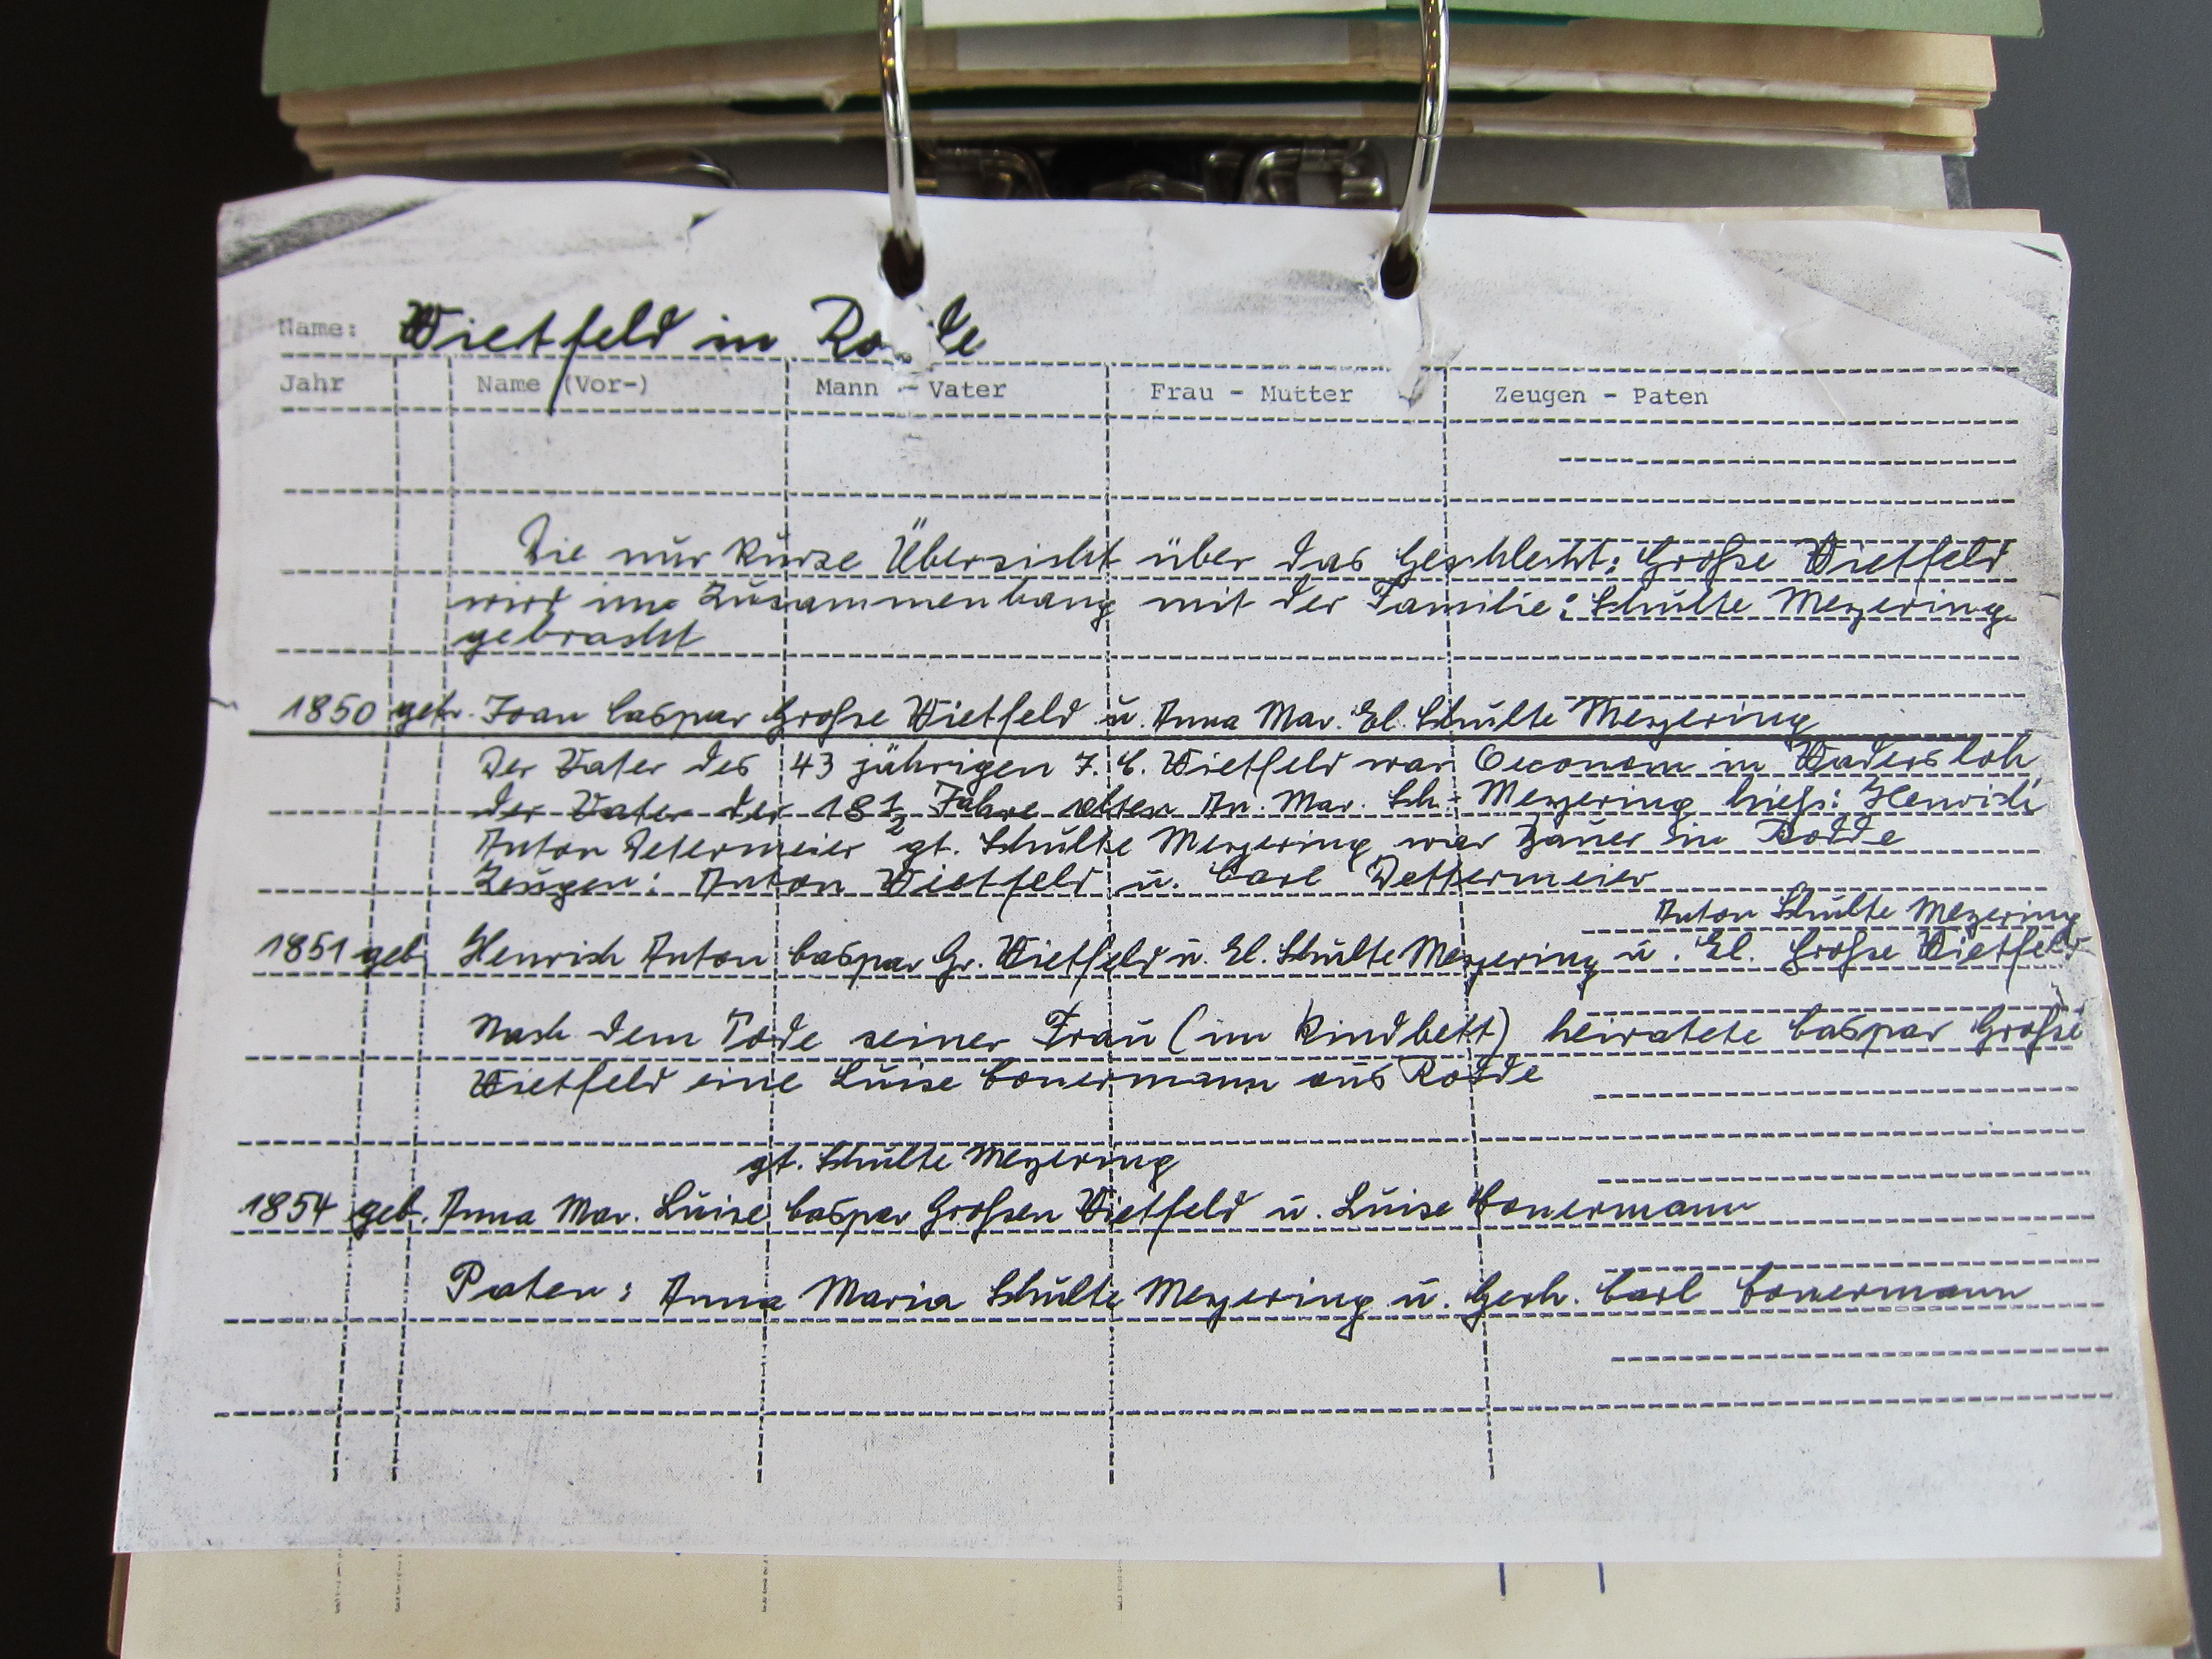 Name: Wietfeld in Ro de
Jahr Name (Vor-) Mann - Vater Frau - Mutter Zeugen - Paten
Die nur kurze Übersicht über das Geschlecht: Große Wietfeld
wird im Zusammenhang mit der Familie: Schulte Meyering
gebracht
1850 getr. Joan Caspar Große Wietfeld u. Anna Mar. El. Schulte Meyering
Der Vater des 43 jährigen J. C. Wietfeld war Oeconom in Wadersloh
der Vater der 18 1/2 Jahre alten An. Mar. Sch. Meyering hieß: Henrich
Anton Determeier gt. Schulte Meyering war Bauer in Rodde
Zeugen: Anton Wietfeld u. Carl Dettermeier
Anton Schulte Meyering
1851 geb. Henrich Anton Caspar Gr. Wietfeld u. El. Schulte Meyering u. El. Große Wietfeld
Nach dem Tode seiner Frau (im Kindbett) heiratete Caspar Große
Wietfeld eine Luise Conermann aus Rodde
gt. Schulte Meyering
1854 geb. Anna Mar. Luise Caspar Großen Wietfeld u. Luise Conermann
Paten: Anna Maria Schulte Meyering u. Gerh. Carl Conermann